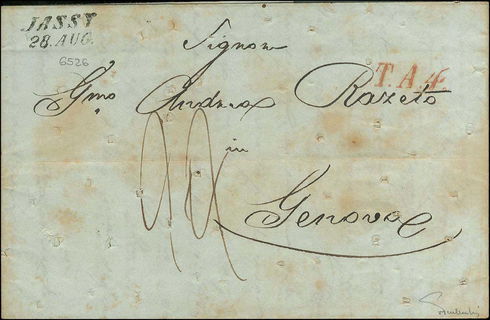 JASSY
28. AUG.
6526
Signor
T.A.4.
Gmo Andrea Razeto
in
Genova